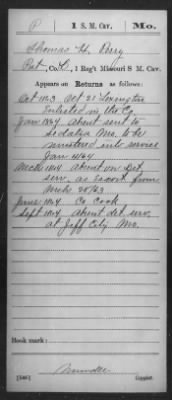 P | 1 S. M. Cav. | Mo.
Thomas H. Perry
Pvt, Co. L, 1 Reg't Missouri S. M. Cav.
Appears on Returns as follows:
Oct 1863 Oct 21 Lexington
Enlisted in the Co
Jany 1864 absent sent to
Sedalia Mo. to be
mustered into service
Jan 14/64
Mch 1864 absent on Det
serv. as escort from
Mch 20/63
June 1864 Co Cook
Sept 1864 absent det serv.
at Jeff City Mo.
Book mark:
(546)
Copyist.